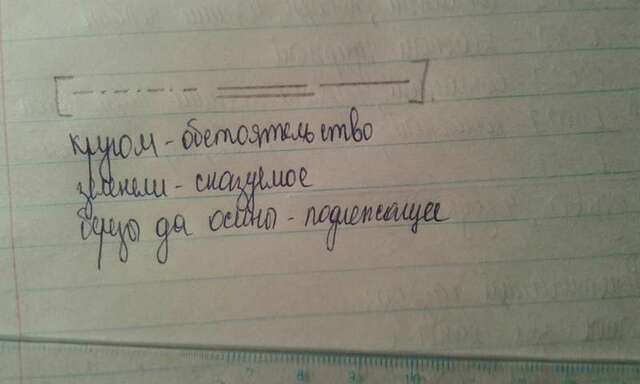 кругом - обстоятельство
зеленели - сказуемое
берёзы да осины - подлежащее